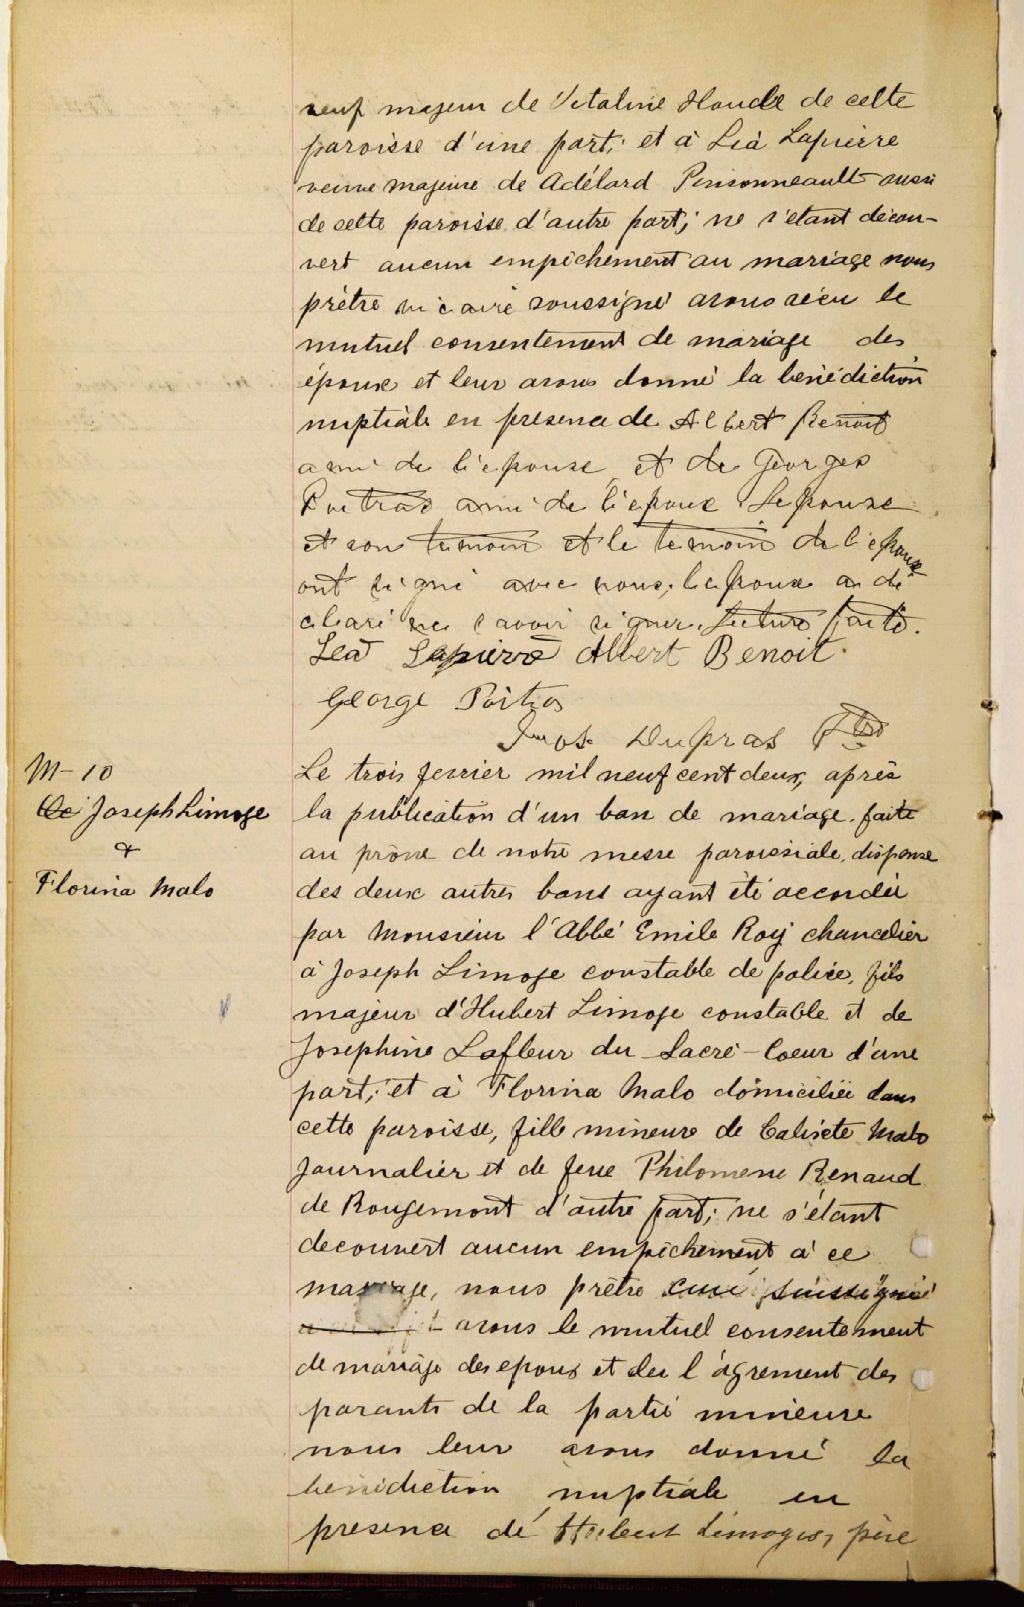 veuf majeur de Vitaline Houde de cette
paroisse d'une part; et à Léà Lapierre
veuve majeure de Adélard Personneault aussi
de cette paroisse d'autre part; ne s'etant décou-
vert aucun empêchement au mariage nous
prètre vicaire soussigné avons recu le
mutuel consentement de mariage des
époux et leur avons donné la benédiction
nuptiale en presence de Albert Benoit
ami de l'epouse, et de Georges
Poitras ami de l'epoux Lepouse
et son temoin et le temoin de l'epoux
ont signé avec nous, l'epoux a dé
claré ne savoir signer. Lecture faite.
Lea Lapierre Albert Benoit.
George Poitras
Jmos. Dupras Ptre
M-10
De Joseph Limoge
&
Florina Malo
Le trois fevrier mil neuf cent deux, après
la publication d'un ban de mariage. faite
au prône de notre messe paroissiale, dispense
des deux autres bans ayant été accordée
par Monsieur l'Abbé Emile Roy chancelier
à Joseph Limoge constable de police, fils
majeur d'Hubert Limoge constable et de
Josephine Lafleur du Sacré-Coeur d'une
part; et à Florina Malo domiciliée dans
cette paroisse, fille mineure de Calixte Malo
Journalier et de feue Philomene Renaud
de Rougemont d'autre part; ne s'étant
decouvert aucun empêchement à ce
mariage, nous prêtre curé soussigné
avons le mutuel consentement
de mariage des epoux et du l'agrement des
parants de la partie mineure
nous leur avons donné la
benédiction nuptiale en
presence de Hubert Limoges, père